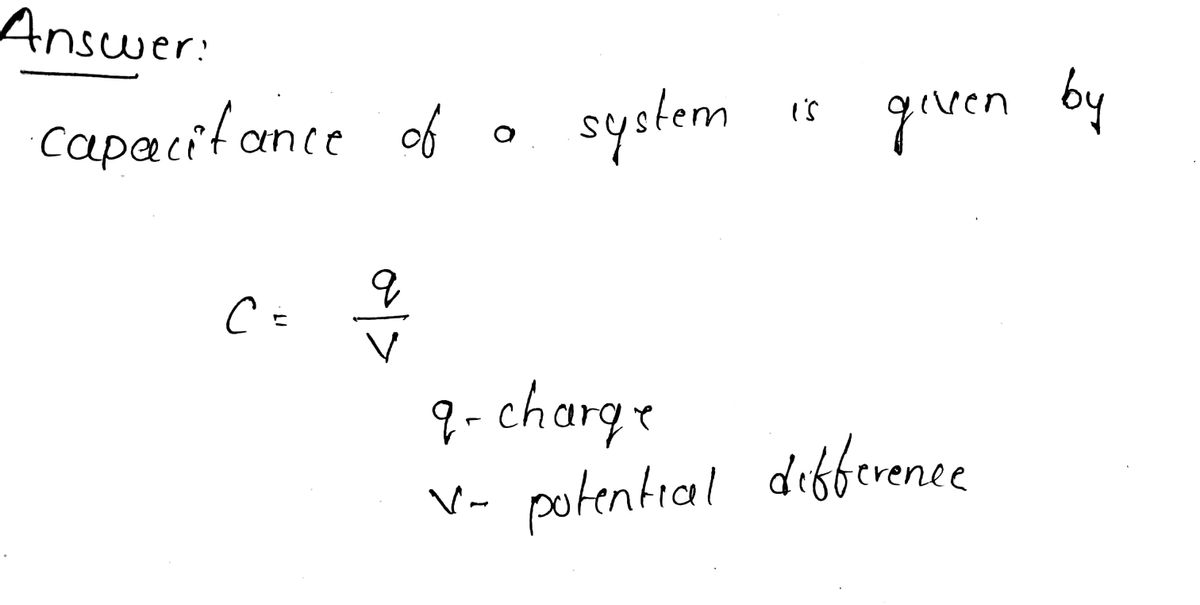 Answer:
capacitance of a system is given by
C = q/V
q - charge
V - potential difference